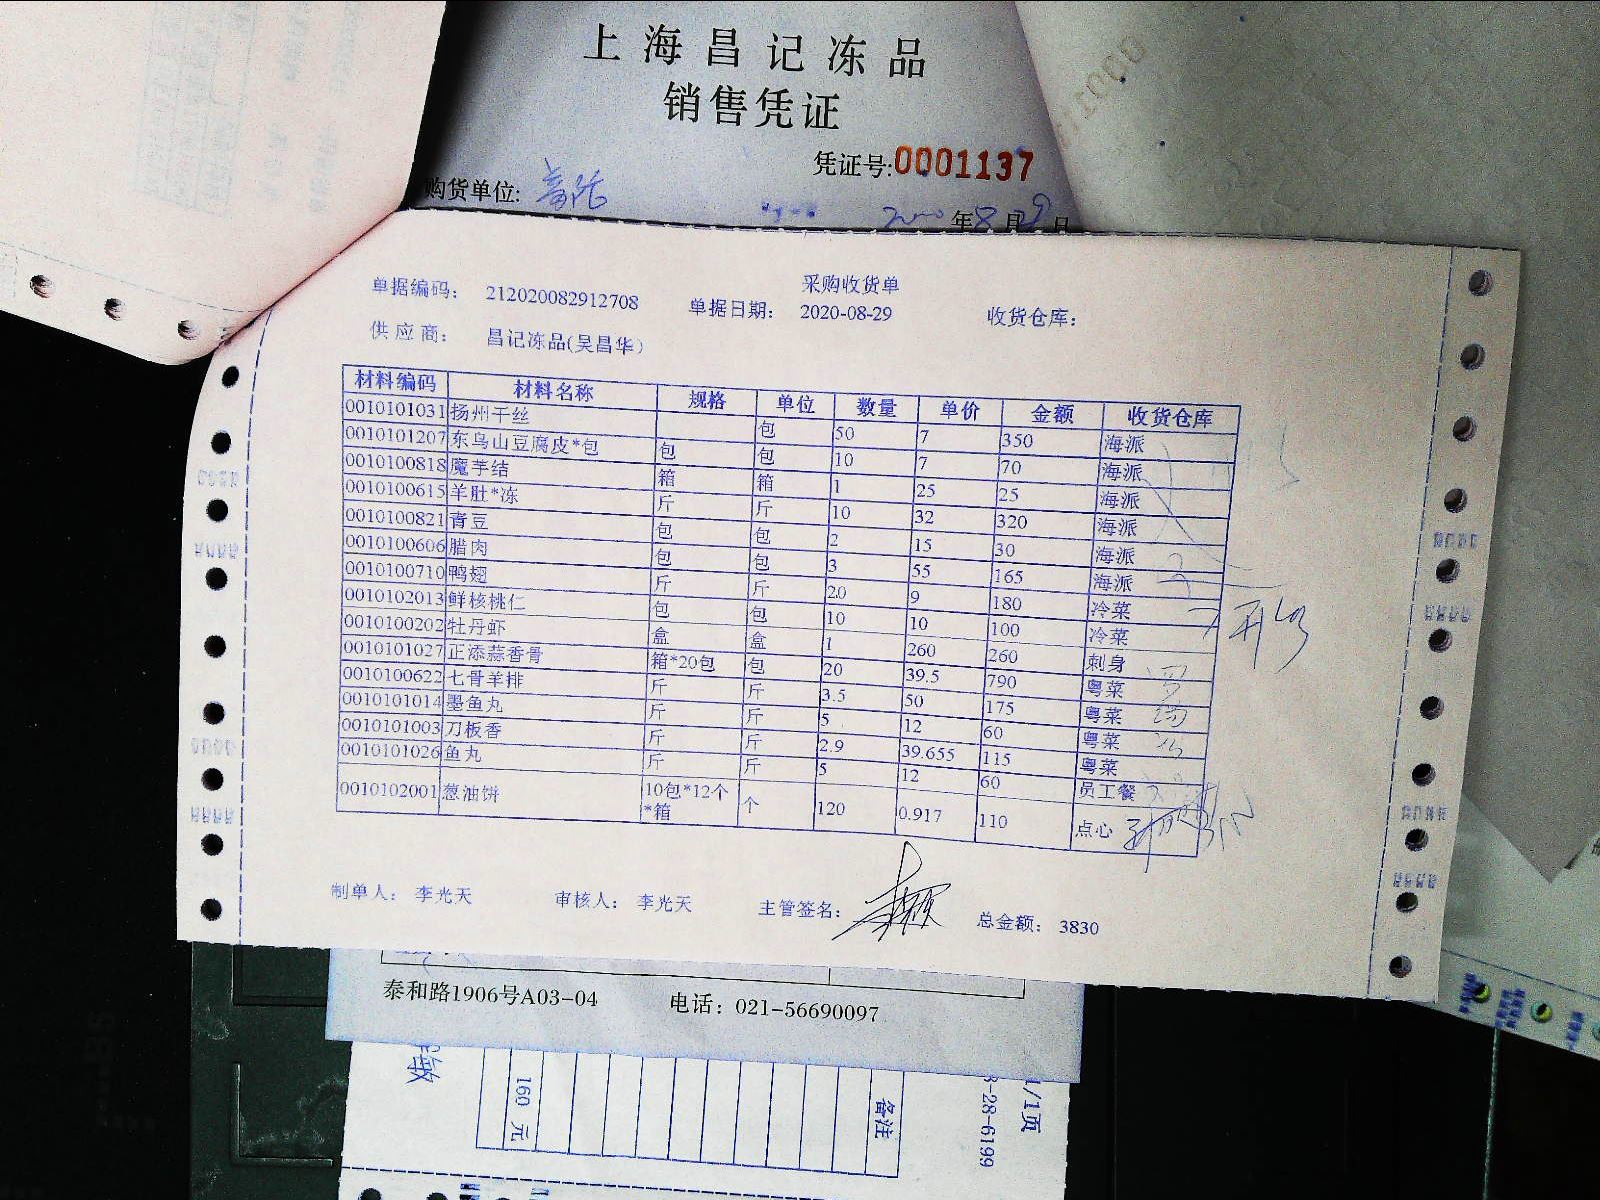 上海昌记冻品
销售凭证
凭证号:0001137
购货单位:
年8月29日
采购收货单
单据编码: 212020082912708 单据日期: 2020-08-29 收货仓库:
供应商: 昌记冻品(吴昌华)
材料编码 材料名称 规格 单位 数量 单价 金额 收货仓库
0010101031 扬州干丝 包 50 7 350 海派
0010101207 东乌山豆腐皮*包 包 包 10 7 70 海派
0010100818 魔芋结 箱 箱 1 25 25 海派
0010100615 羊肚*冻 斤 斤 10 32 320 海派
0010100821 青豆 包 包 2 15 30 海派
0010100606 腊肉 包 包 3 55 165 海派
0010100710 鸭翅 斤 斤 20 9 180 冷菜
0010102013 鲜核桃仁 包 包 10 10 100 冷菜
0010100202 牡丹虾 盒 盒 1 260 260 刺身
0010101027 正添蒜香骨 箱*20包 包 20 39.5 790 粤菜
0010100622 七骨羊排 斤 斤 3.5 50 175 粤菜
0010101014 墨鱼丸 斤 斤 5 12 60 粤菜
0010101003 刀板香 斤 斤 2.9 39.655 115 粤菜
0010101026 鱼丸 斤 斤 5 12 60 员工餐
0010102001 葱油饼 10包*12个*箱 个 120 0.917 110 点心
制单人: 李光天 审核人: 李光天 主管签名: 总金额: 3830
泰和路1906号A03-04 电话: 021-56690097
160 元
备注
8-28-6199
1/1页